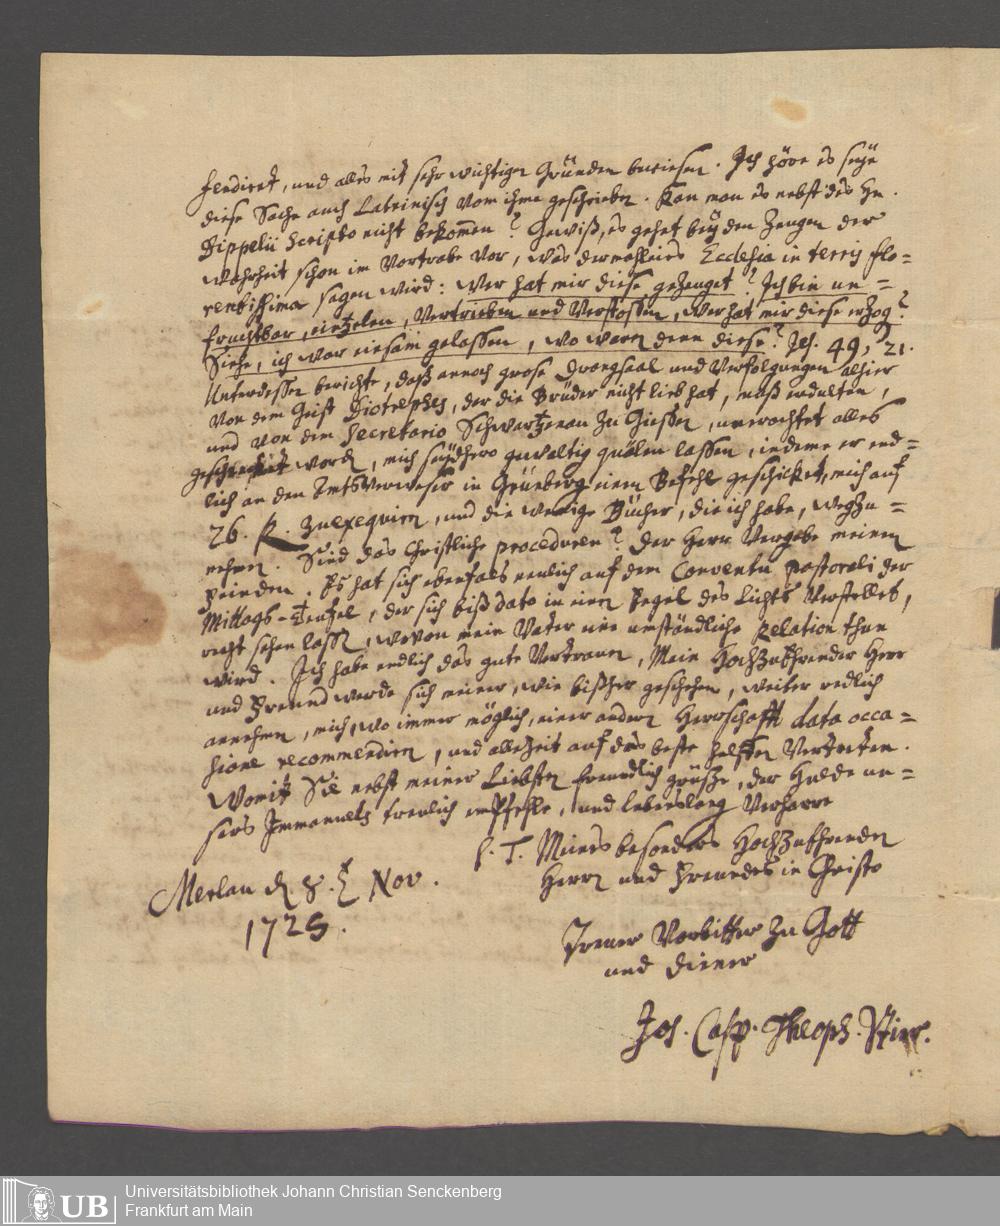 fendiret, und alles mit sehr wichtigen Gründen bewiesen. Ich höre es seye
diese Sache auch Lateinisch von ihme geschrieben. Kan man es nebst des Hn.
Dippelii Scripto nicht bekommen? Gewiß, es gehet bey den Zeugen der
Wahrheit schon im Vortrabe vor, was dermahleins Ecclesia in terris flo=
rentissima sagen wird: Wer hat mir diese gezeuget? Ich bin un=
fruchtbar, eintzelen, Vertrieben und Verstossen, Wer hat mir diese erzog?
Siehe, ich war einsam gelassen, wo waren denn diese? Jes. 49, 21.
Unterdessen berichte, daß annoch grose Drangsaal und Verfolgungen alhier
Von dem Geist Diotrephes, der die Brüder nicht lieb hat, muß erdulten,
und von dem Secretario Schwartzenau zu Giessen, unerachtet alles
worden, mich seithero gewaltig quälen lassen, indeme er end=
lich an den Amtsverweser in Grünberg einen Befehl geschicket, mich auf
26. R. zu exequiren, und die wenige Bücher, die ich habe, wegzu=
nehmen. Sind das Christliche proceduren? Der Herr Vergebe meinen
Feinden. Es hat sich ebenfals neulich auf dem Conventu pastorali der
Mittags-Teufel, der sich biß dato in einen Engel des Lichts Verstellet,
recht sehen lassen, wovon mein Vater eine umständliche Relation thun
wird. Ich habe endlich das gute Vertrauen, Mein Hochzuehrender Herr
und Freund werde sich meiner, wie bißher geschehen, weiter redlich
annehmen, mich, wo immer möglich, einer andern Herrschafft data occa=
sione recommendiren, und allezeit auf das beste helffen Vertreten.
Womit Sie nebst meiner Liebsten freundlich grüße, der Hulde un=
sers Immanuels treulich empfehle, und lebenslang Verharre
P. T. Meines besonders Hochzuehrenden
Herrn und Freundes in Christo
Merlau d 8. Nov.
1728.
Treuer Vorbitter zu Gott
und Diener
Joh. Casp. Theoph. Stirr.
UB
Universitätsbibliothek Johann Christian Senckenberg
Frankfurt am Main